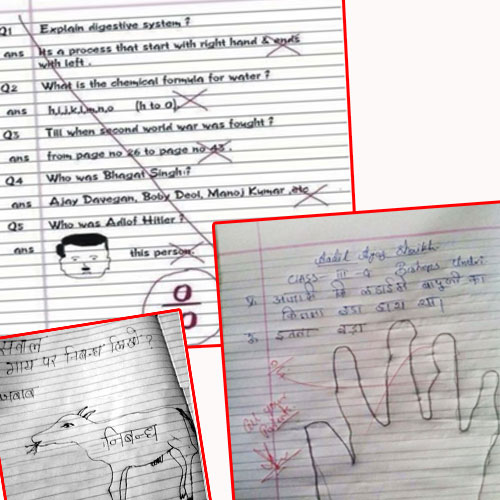 Q1 Explain digestive system ?
ans Its a process that start with right hand & ends
with left .
Q2 What is the chemical formula for water ?
ans h,i,j,k,l,m,n,o (h to o)
Q3 Till when second world war was fought ?
ans from page no 26 to page no 45 .
Q4 Who was Bhagat Singh ?
ans Ajay Davegan, Boby Deol, Manoj Kumar ,etc
Q5 Who was Adlof Hitler ?
ans this person.
0
0
सवाल
गाय पर निबन्ध लिखो ?
जवाब
निबन्ध
Shaikh
CLASS- III - Bishops Undri
प्र. की लडाई में बापूजी का
कितना बडा हाथ था।
उ. इतना बडा